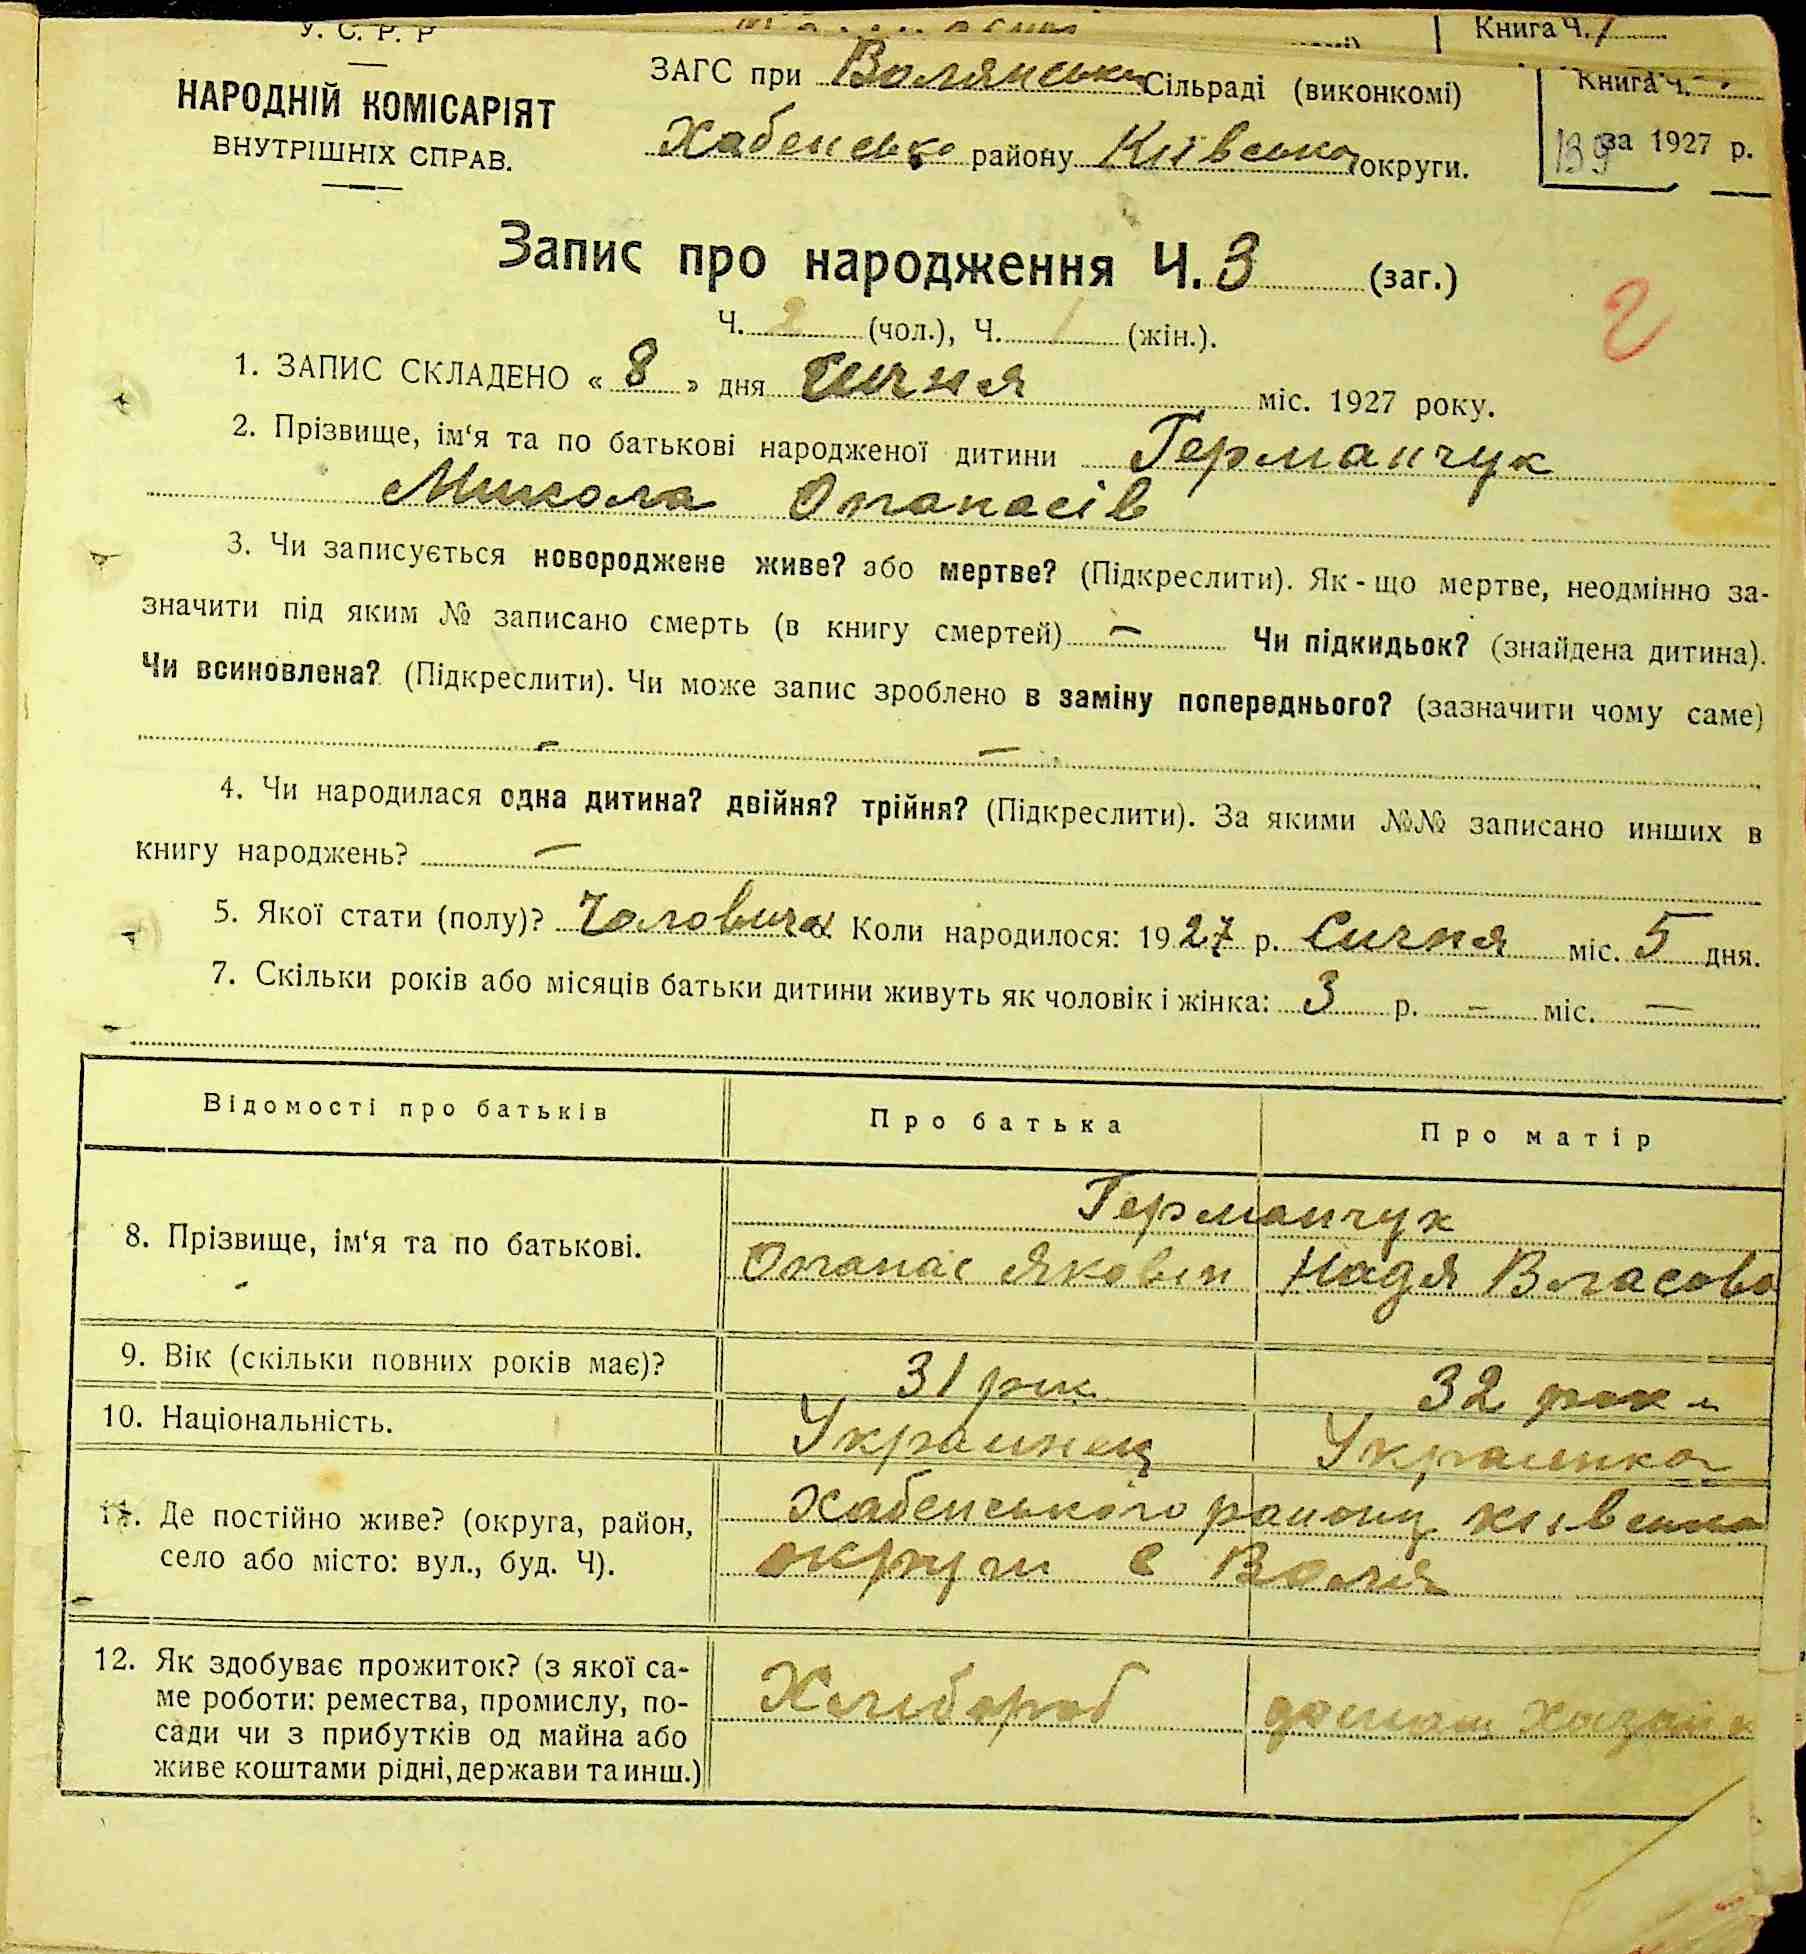 У. С. Р. Р
Книга Ч. 1
НАРОДНІЙ КОМІСАРІЯТ
ВНУТРІШНІХ СПРАВ.
ЗАГС при Волянськ Сільраді (виконкомі)
Хабенсько району Київсько округи.
Книга Ч.
139 за 1927 р.
Запис про народження Ч. 3 (заг.)
2
Ч. 2 (чол.), Ч. 1 (жін.).
1. ЗАПИС СКЛАДЕНО « 8 » дня Сичня міс. 1927 року.
2. Прізвище, ім‘я та по батькові народженої дитини Германчук
Микола Опанасів
3. Чи записується новороджене живе? або мертве? (Підкреслити). Як-що мертве, неодмінно за-
значити під яким № записано смерть (в книгу смертей) — Чи підкидьок? (знайдена дитина).
Чи всиновлена? (Підкреслити). Чи може запис зроблено в заміну попереднього? (зазначити чому саме)
— —
4. Чи народилася одна дитина? двійня? трійня? (Підкреслити). За якими №№ записано инших в
книгу народжень? —
5. Якої стати (полу)? Чоловича Коли народилося: 1927 р. Сичня міс. 5 дня.
7. Скільки років або місяців батьки дитини живуть як чоловік і жінка: 3 р. — міс. —
Відомості про батьків Про батька Про матір
8. Прізвище, ім‘я та по батькові.
Германчук
Опанас Яковіп Надя Власова
9. Вік (скільки повних років має)? 31 рик 32 роки
10. Національність. Украинец Украинка
11. Де постійно живе? (округа, район,
село або місто: вул., буд. Ч).
Хабенського району Київсько
округи с Воля
12. Як здобуває прожиток? (з якої са-
ме роботи: ремества, промислу, по-
сади чи з прибутків од майна або
живе коштами рідні, держави та инш.)
Хлибороб домаш хазяйк